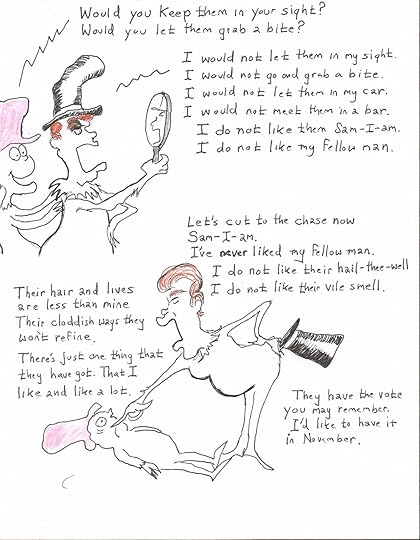 Would you keep them in your sight?
Would you let them grab a bite?
I would not let them in my sight.
I would not go and grab a bite.
I would not let them in my car.
I would not meet them in a bar.
I do not like them Sam-I-am.
I do not like my Fellow man.
Let's cut to the chase now
Sam-I-am.
I've never liked my Fellow man.
I do not like their hail-thee-well
I do not like their vile smell.
Their hair and lives
are less than mine
Their cloddish ways they
won't refine.
There's just one thing that
they have got. That I
like and like a lot.
They have the vote
you may remember.
I'd like to have it
in November.